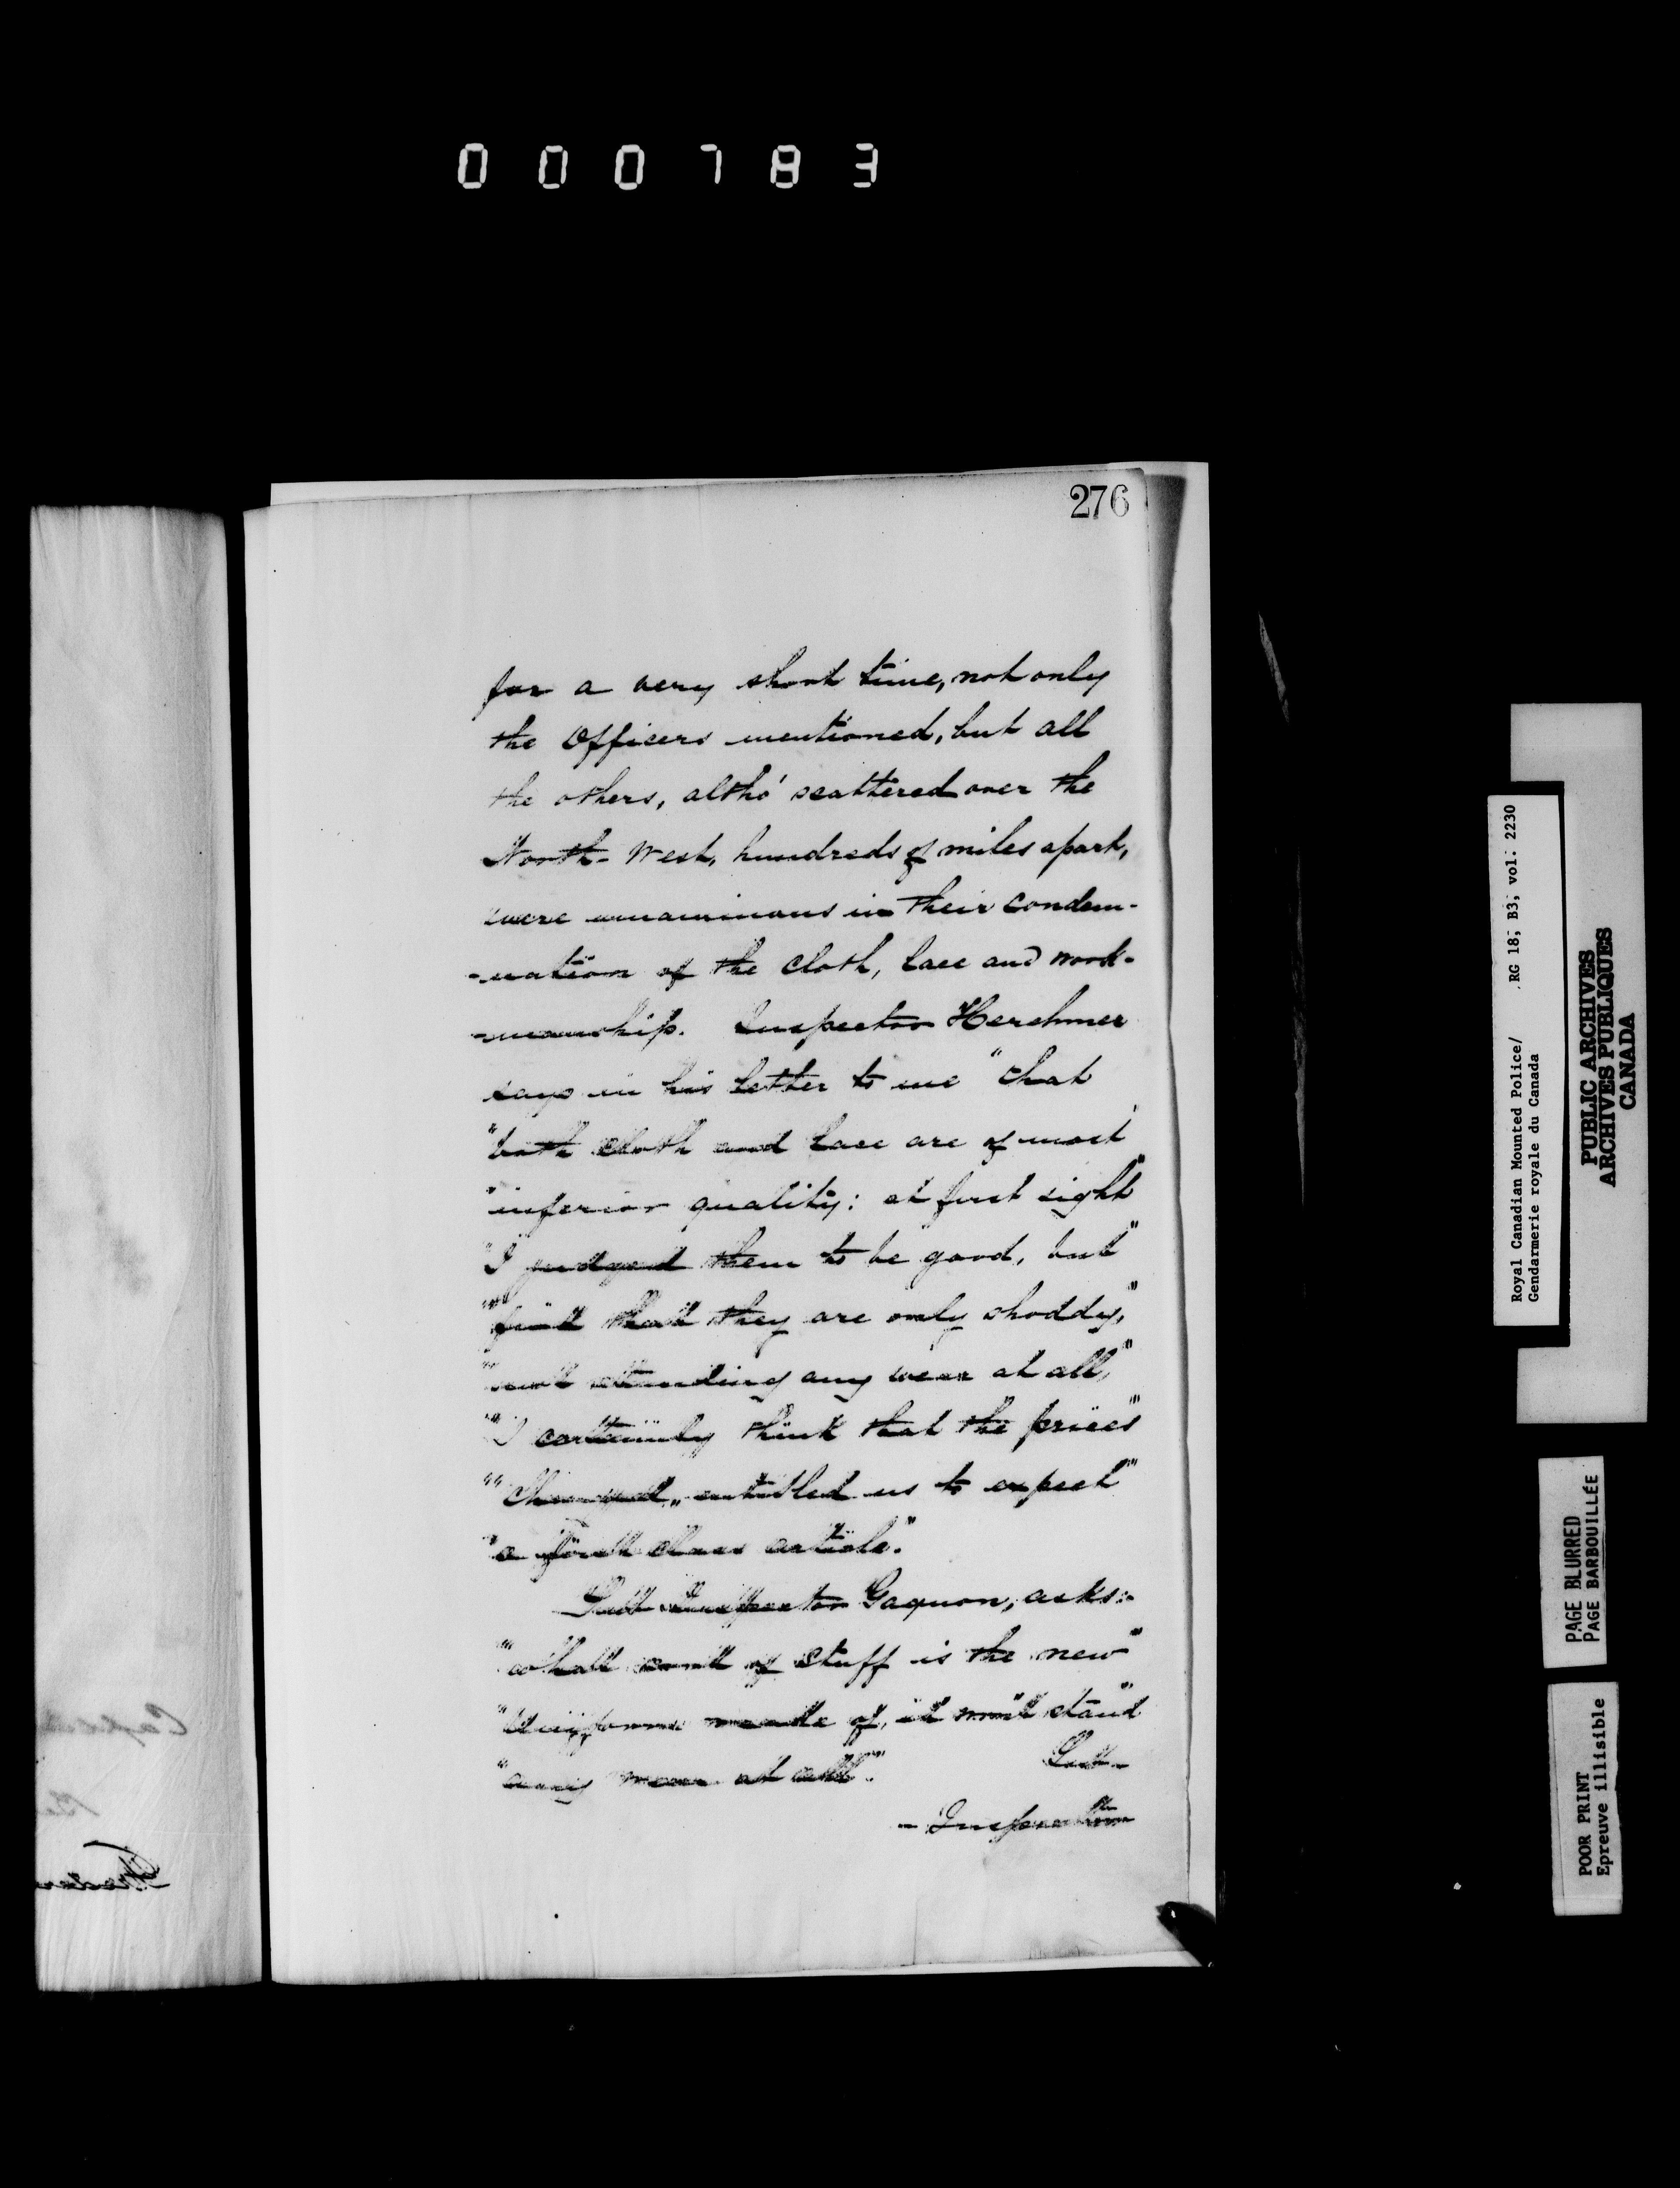 000783
276
for a very short time, not only
the Officers mentioned, but all
the others, altho' scattered over the
North-West, hundreds of miles apart,
were unanimous in their condem-
-nation of the cloth, lace and work-
-manship. Inspector Herchmer
says in his letter to me "that
"both cloth and lace are of most"
"inferior quality: at first sight"
"I judged them to be good, but"
"find that they are only shoddy,"
"not standing any wear at all,"
"I certainly think that the prices"
"charged, entitled us to expect"
"a first class article".
Sub-Inspector Gagnon, asks:-
"what sort of stuff is the new"
"Uniforms made of, it won't stand
"any wear at all".
Sub-
-Inspector
Royal Canadian Mounted Police/ RG 18, B3, vol. 2230
Gendarmerie royale du Canada
PUBLIC ARCHIVES
ARCHIVES PUBLIQUES
CANADA
PAGE BLURRED
PAGE BARBOUILLÉE
POOR PRINT
Epreuve illisible